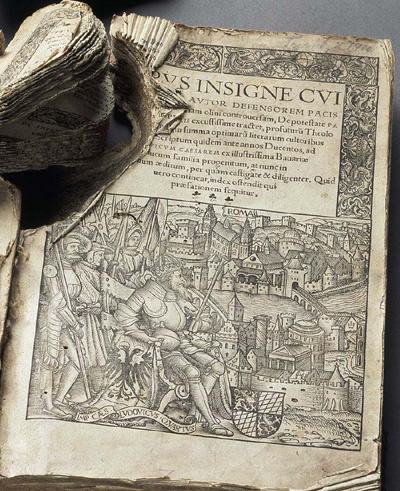 PVS INSIGNE CVI
AVTOR DEFENSOREM PACIS
olim controuersam, De potestate PA
excussissime tractet, profuturū Theolo
summa optimarū literarum cultoribus
Scriptum quidem ante annos Ducentos, ad
CAESAREM ex illustrissima Bauariæ
familia progenitum, at nunc in
æditum, per quam castigate & diligenter. Quid
uero contineat, index ostendit qui
præfationem sequitur.
ROMA
IMP CAES LVDOVICVS QVARTVS